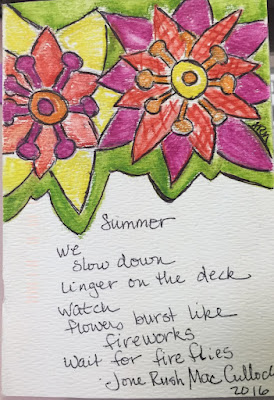 Summer
we
slow down
linger on the deck
watch
flowers burst like
fireworks
wait for fireflies
Jone Rush MacCulloch
2016